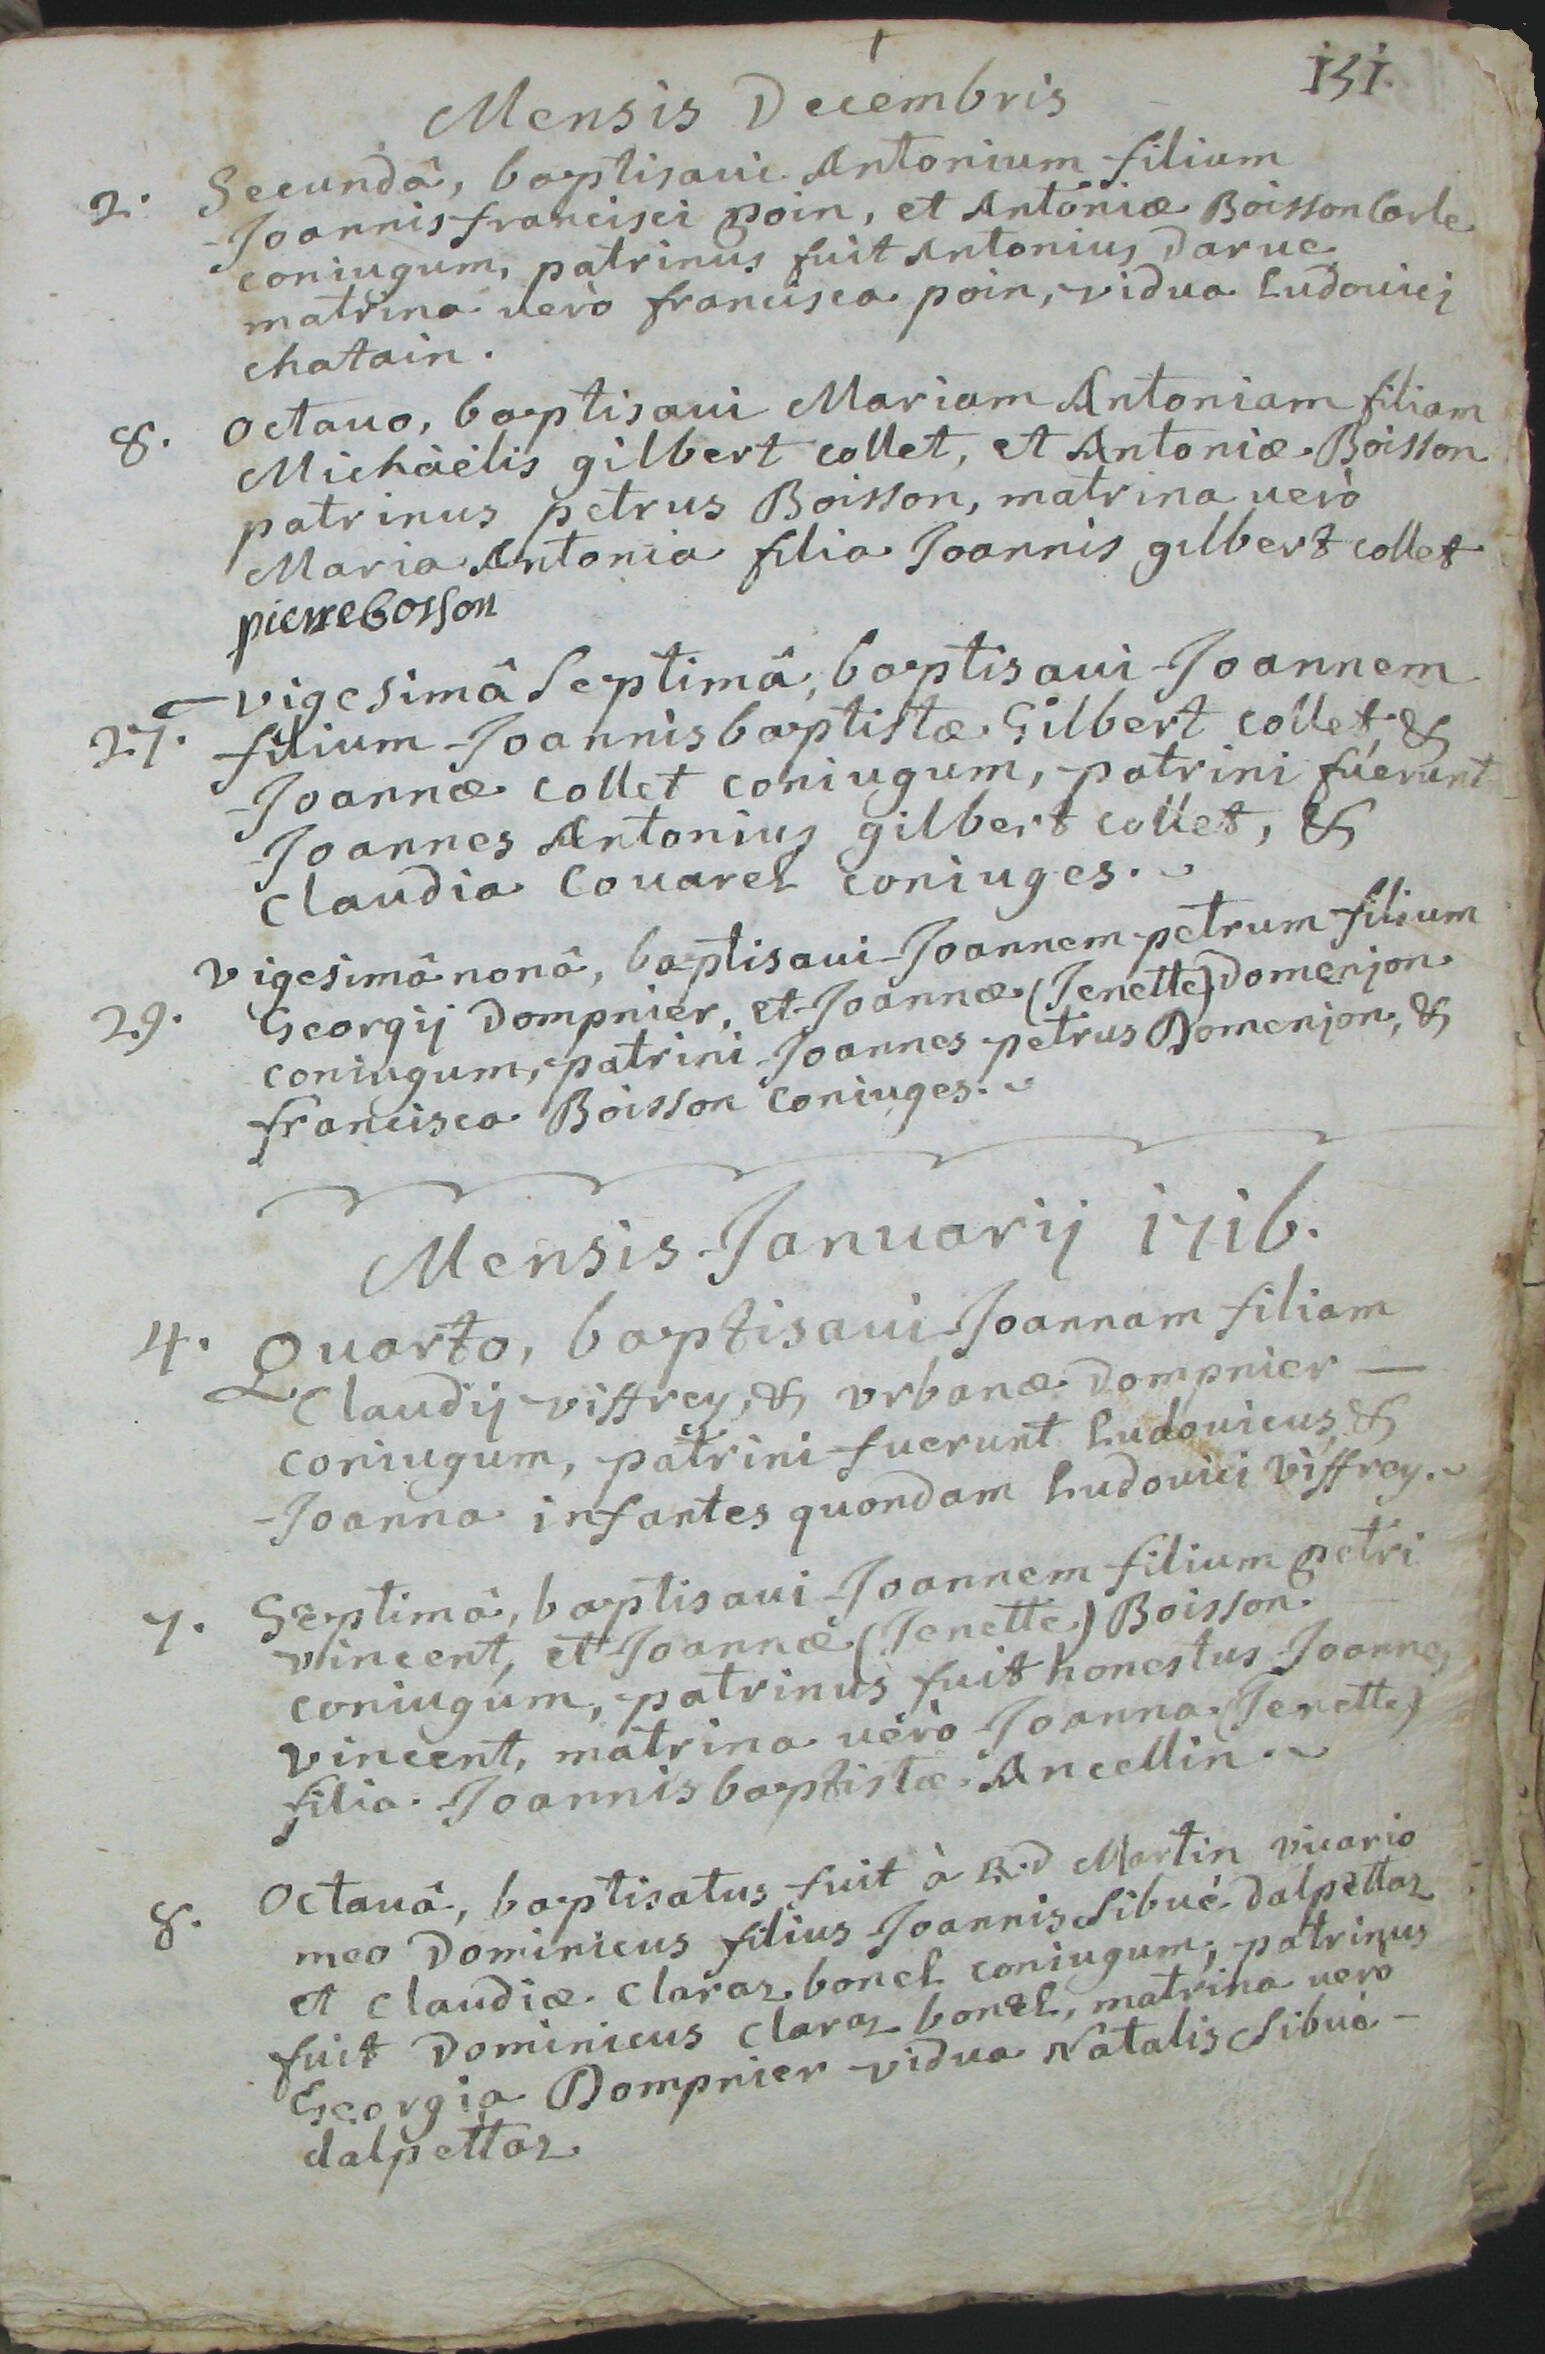 151.
Mensis Decembris
2. Secundâ, baptisaui Antonium filium
Joannisfrancisci poin, et Antoniæ Boisson Carle
coniugum, patrinus fuit Antonius Darue
matrina uerò francisca poin, vidua Ludouicj
chatain.
8. Octauo, baptisaui Mariam Antoniam filiam
Michäëlis gilbert collet, et Antoniæ Boisson
patrinus petrus Boisson, matrina uerò
Maria Antonia filia Joannis gilbert collet
pierre bosson
27. vigesimâ Septimâ, baptisaui Joannem
filium Joannisbaptistæ Gilbert collet &
Joannæ collet coniugum, patrini fuerunt
Joannes Antonius gilbert collet, &
Claudia Couarel coniuges.
29. vigesimâ nonâ, baptisaui Joannem petrum filium
Georgij Dompnier, et Joannæ (Jenette) Domenjon
coniugum, patrini Joannes petrus Domenjon, &
francisca Boisson coniuges.
Mensis Januarij 1716.
4. Quarto, baptisaui Joannam filiam
Claudij viffrey, & vrbanæ Dompnier —
coniugum, patrini fuerunt Ludouicus, &
Joanna infantes quondam Ludouici viffrey.
7. Septimâ, baptisaui Joannem filium petri
vincent, et Joannæ (Jenette) Boisson
coniugum, patrinus fuit honestus Joannes
vincent, matrina uerò Joanna (Jenette)
filia Joannisbaptistæ Ancellin.
8. Octauâ, baptisatus fuit à R.d Martin vicario
meo Dominicus filius Joannis Sibué dalpettaz
et Claudiæ Claraz bonel coniugum, patrinus
fuit Dominicus Claraz bonel, matrina uero
Georgia Dompnier vidua Natalis Sibué -
dalpettaz